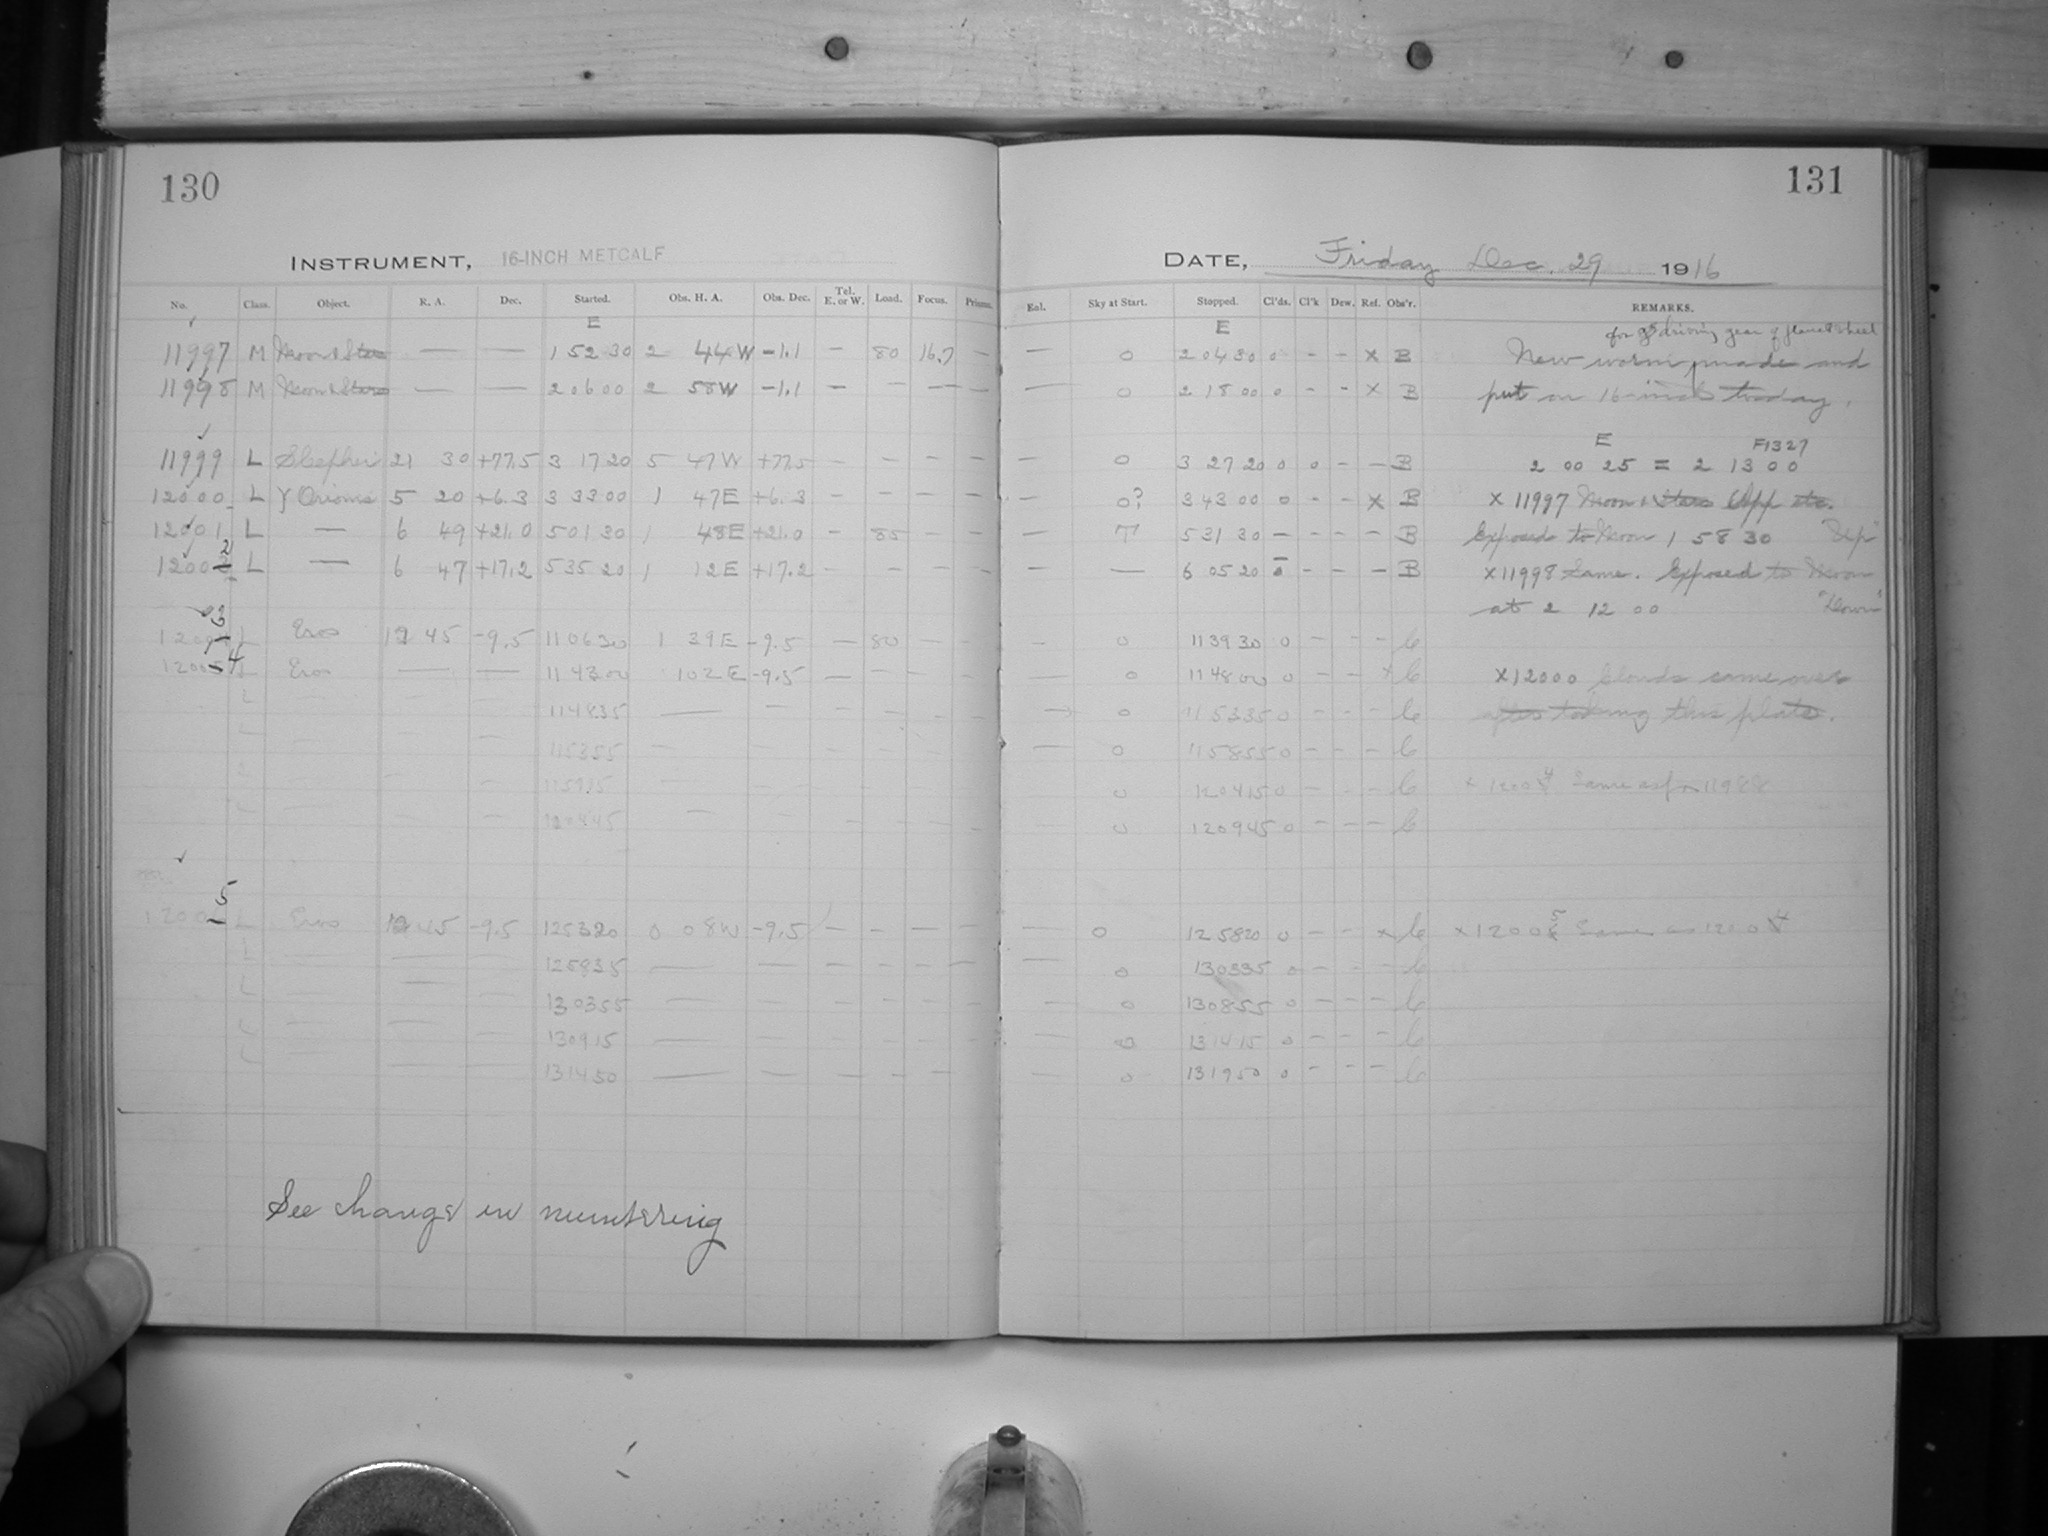 130
INSTRUMENT, 16-INCH METCALF
No. Class. Object. R. A. Dec. Started. Obs. H. A. Obs. Dec. Tel. E. or W. Load. Focus. Prisms.
E
11997 M Moon & Stars — — 1 52 30 2 44 W -1.1 — 80 16.7 —
11998 M Moon & Stars — — 2 06 00 2 58 W -1.1 — — — —
11999 L 21 30 +77.5 3 17 20 5 47 W +77.5 — — — —
12000 L γ Orionis 5 20 +6.3 3 33 00 1 47 E +6.3 — — — —
12001 L — 6 49 +21.0 5 01 30 1 48 E +21.0 — 85 — —
12002 L — 6 47 +17.2 5 35 20 1 12 E +17.2 — — — —
3 L Eros 45 -9.5 11 06 30 1 39 E -9.5 — 80
4 L Eros — — 11 43 00 1 02 E -9.5 — — — —
L 11 48 35 — —
L 11 53 55 — —
11 59 15 — —
L 12 04 45 — —
5 L Eros 45 -9.5 12 53 20 0 08 W -9.5 — — — —
L — — 12 58 35 — — — — — —
L — 13 03 55 — — — — — —
L — — 13 09 15 — — — — — —
L — — 13 14 50 — — — — — —
See change in numbering
131
DATE, Friday Dec. 29 1916
Eol. Sky at Start. Stopped. Cl'ds. Cl'k Dew. Ref. Obs'r. REMARKS.
E
— 0 2 04 30 0 - - x B New worm made and
for driving gear of
— 0 2 18 00 0 - - x B put on 16-inch today.
E F1327
— 0 3 27 20 0 0 - - B 2 00 25 = 2 13 00
— 0? 3 43 00 0 - - x B x 11997 Moon & Stars
— 5 31 30 - - - - B Exposed to Moon 1 58 30 "Up"
— — 6 05 20 - - - B x 11998 Same. Exposed to Moon
at 2 12 00 "Down"
- 0 11 39 30 0 - - - C
— 0 11 48 00 0 - - x C x 12000 Clouds came over
0 11 53 35 0 - - - C after taking this plate.
— 0 11 58 55 0 - - - C
0 12 04 15 0 - - - C x 12004 Same as for 11988
— 0 12 09 45 0 - - - C
— 0 12 58 20 0 - - x C x 12005 Same as 12004
— 0 13 03 35 0 - - - C
— 0 13 08 55 0 - - - C
— 0 13 14 15 0 - - - C
— 0 13 19 50 0 - - - C